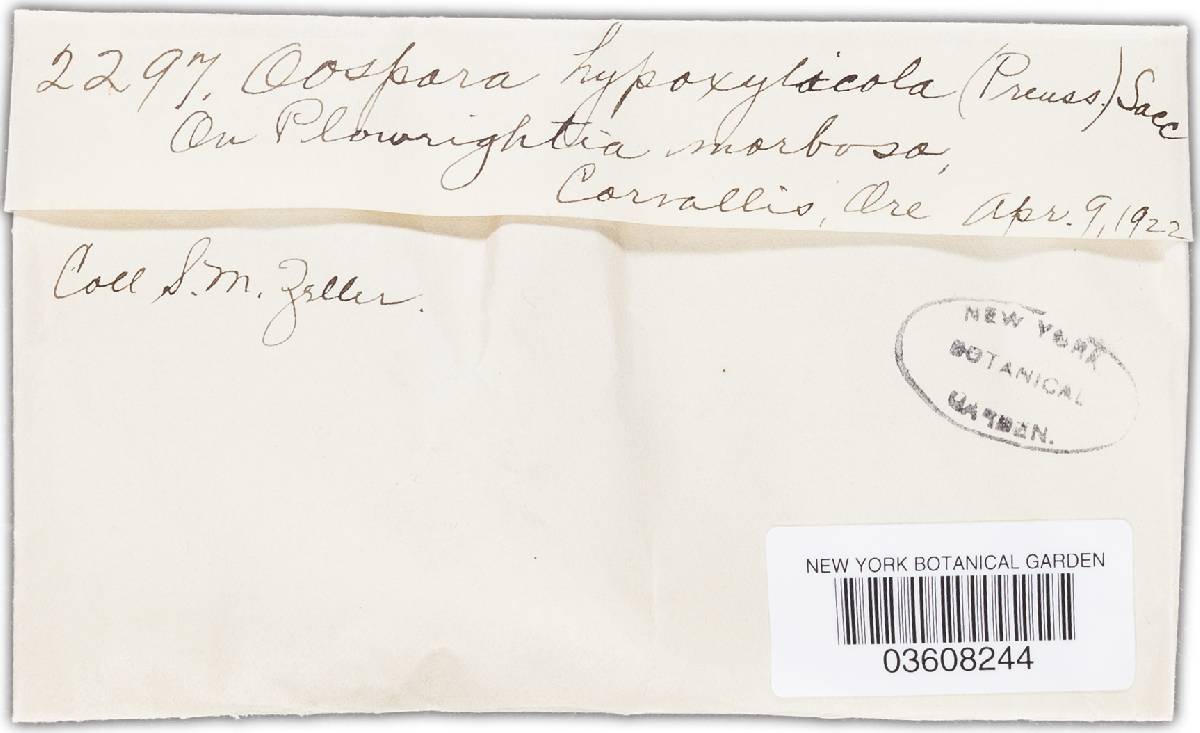 2297, Oospora hypoxylicola (Preuss.) Sacc
On Plowrightia morbosa,
Corvallis, Ore Apr. 9, 1922
Coll S. M. Zeller.
NEW YORK
BOTANICAL
GARDEN.
NEW YORK BOTANICAL GARDEN
03608244